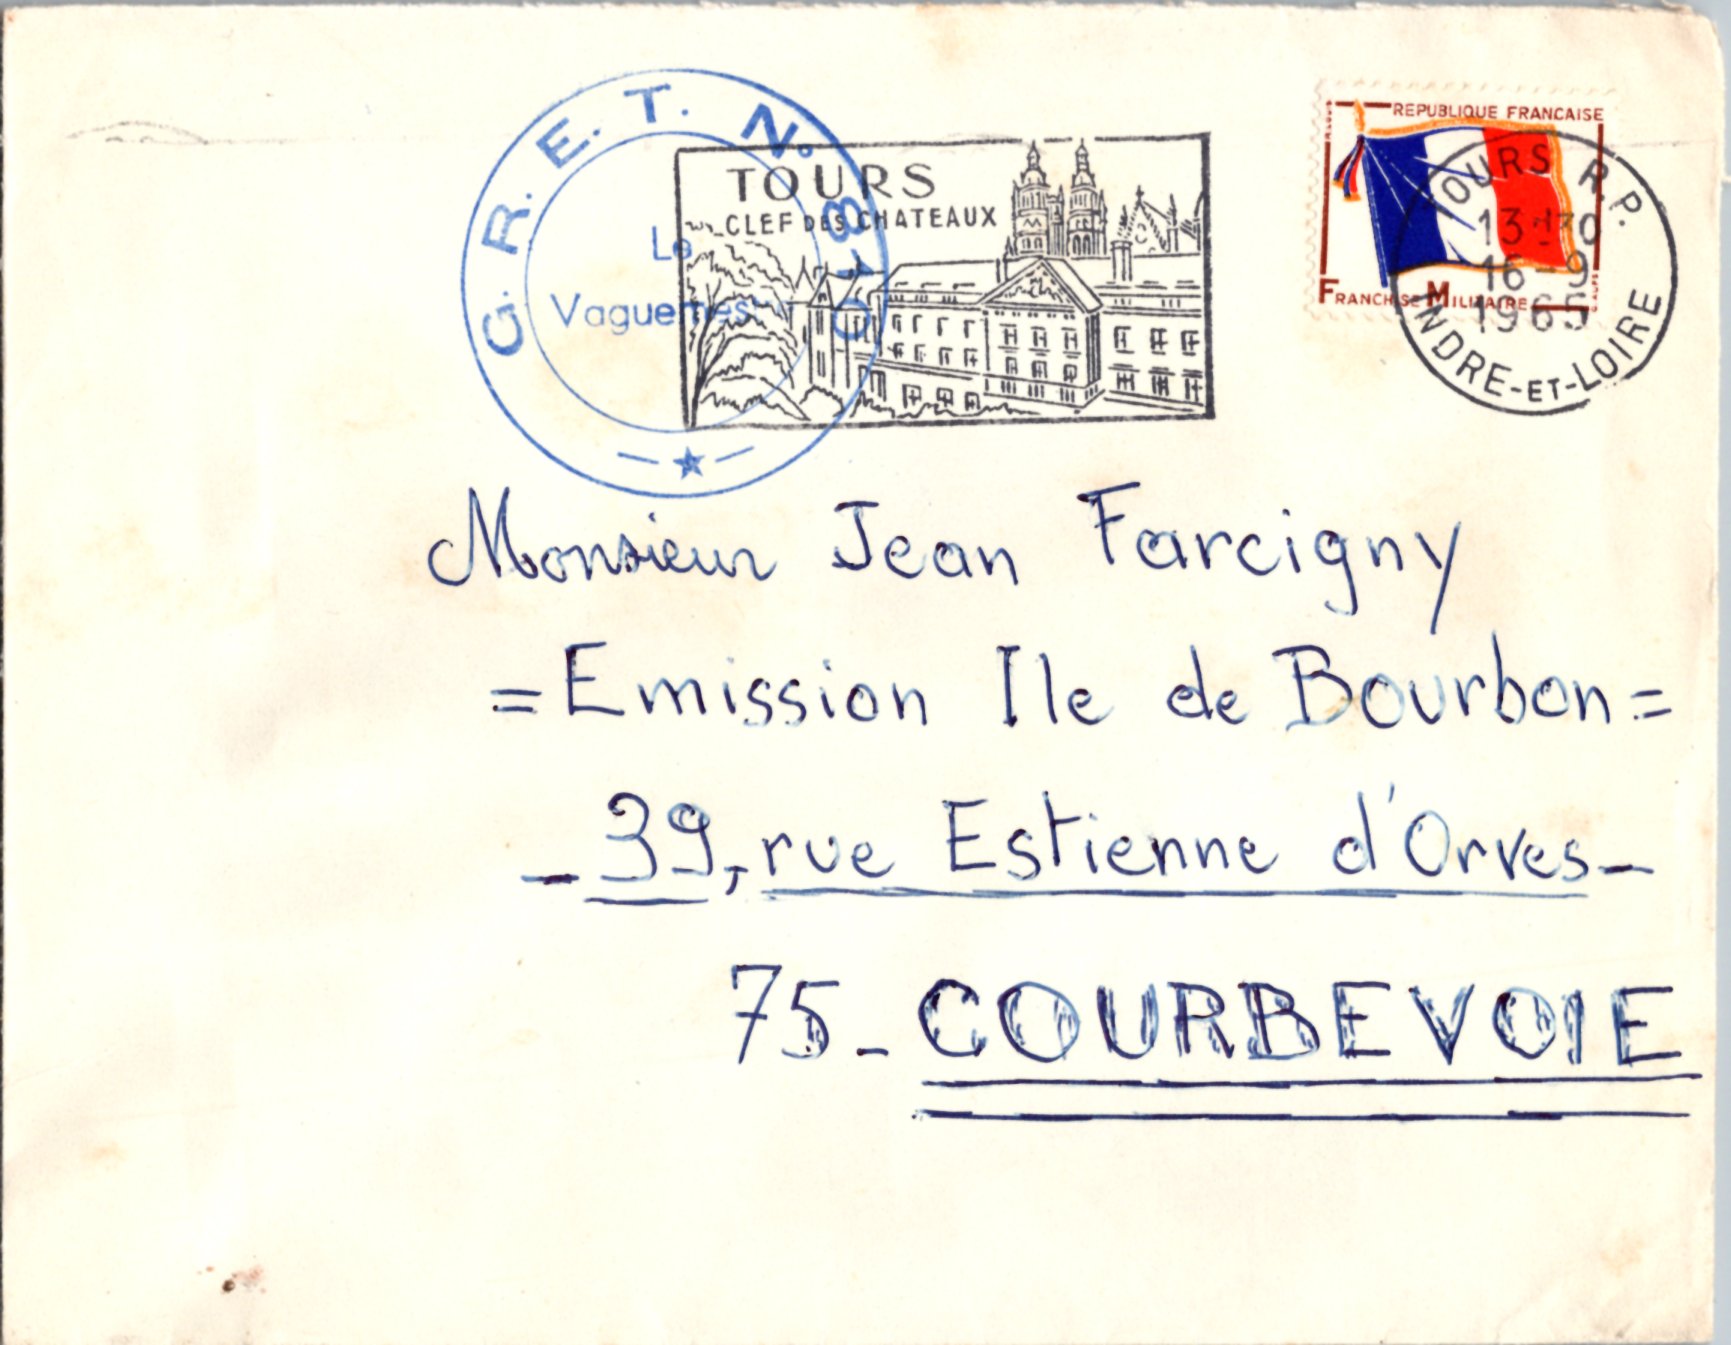 G. R. E. T. No
Le
Vaguemest
TOURS
CLEF DES CHATEAUX
REPUBLIQUE FRANCAISE
FRANCHISE MILITAIRE
TOURS R.P.
13H30
16-9
1965
INDRE-ET-LOIRE
Monsieur Jean Farcigny
=Emission Ile de Bourbon=
- 39, rue Estienne d'Orves-
75- COURBEVOIE